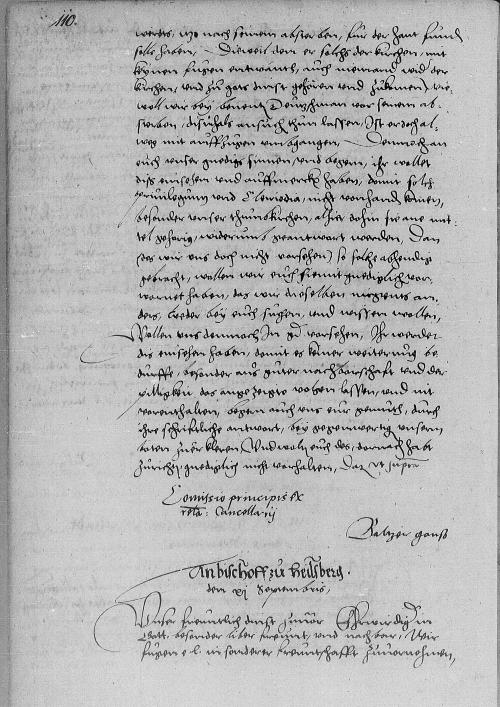 110.
werdts, itzo nach seinem absterben, für der handt funden
solle haben, Dieweil dem er solchs der kirchen, mit
keynen fugen entwandt, auch niemand wid der
kirchen, und zu gots dinst gehören und zukumen, wie
woll wir bey benent Deuzschman vor seinem ab-
sterben, dismals ansuch thun lassen, Ist er doch al-
weg mit auffzugen umbgangen, Demnach an
euch unser gnedigs sinnen, und begern, ihr wollet
diss einsehen und auffmerck haben, damit solch
privilegium und Cleinodia, nicht vorhand kumen,
besonder unser thumbkirchen, alher dohin sie ane mit-
tel gehorig, widerumb geantwort werden, Dan
des wir uns doch nicht vorsehen, so solche abhendig
gebracht, wollen wir euch hiemit gnediglich vor-
warnet haben, das wir dieselben nirgents an-
ders, weder bey euch suchen, und wissen wollen,
Wollen uns demnach In gd vorsehen, Ihr werdet
die einsehen haben, domit es keiner weiterung be
durffe, besonder aus guter nachbarschaft und der
pilligkeit das angezeigte volgen lassen, und nit
vorenthalten, begern auch uns eur gemuth, durch
ihre schriftliche antwort, bey gegenwertig unsern
boten zuerkleren, Und wolt euch des, darnach habt
zurichten gnediglich nicht vorhalten, Dat ut supra
Comissio principis ex
rela: Cancellarij
Baltzer gans
An bischoff zu heilsberg.
den xj Septembris,
Unser freuntlich dinst zuvor Ehrwirdig in
Gott, besonder liber freunt, und nachbar, Wir
fugen e l. in sonderer freuntschafft zuvornehmen,